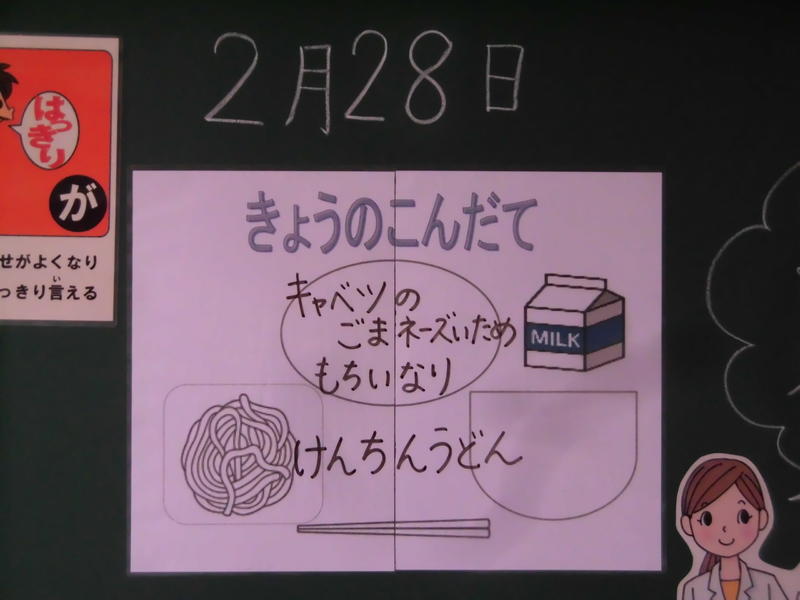 2月28日
はっきり
が
せがよくなり
い
っきり言える
きょうのこんだて
キャベツの
ごまネーズいため
もちいなり
MILK
けんちんうどん